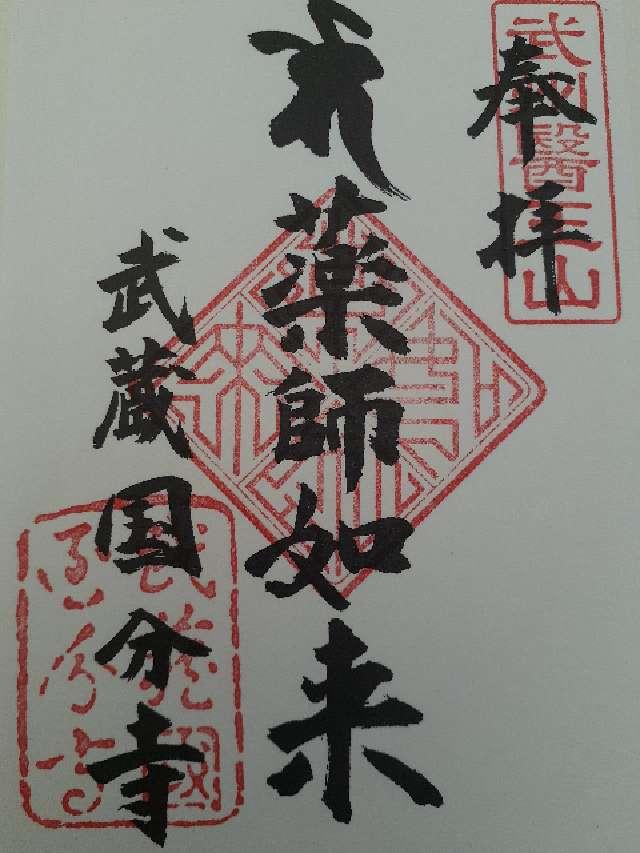 奉拝
武州醫王山
薬師如来
武蔵国分寺
武蔵國
国分寺